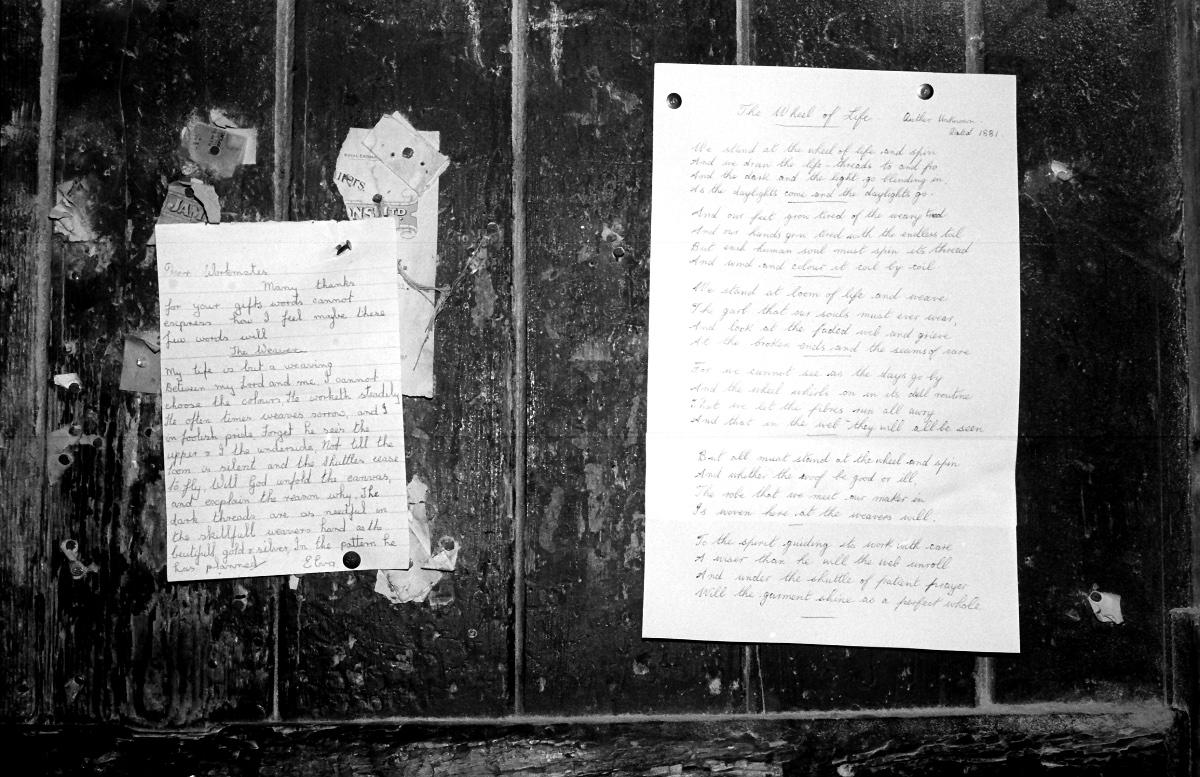 JAM
NS LTD
Dear Workmates
Many thanks
for your gifts words cannot
express how I feel maybe these
few words will
The Weaver
My life is but a weaving
Between my Lord and me, I cannot
choose the colours, He worketh steadily
He often times weaves sorrow, and I
in foolish pride Forget he sees the
upper & I the underside, Not till the
loom is silent and the Shuttles cease
to fly, Will God unfold the canvas,
and explain the reason why. The
dark threads are as needful in
the skillfull weavers hand as the
beutifull gold & silver, In the pattern he
has planned Elva
The Wheel of Life
Auther Unknown.
Dated 1881.
We stand at the wheel of life and spin
And we draw the life threads to and fro
And the dark and the light go blending in
As the daylights come and the daylights go.
And our feet grow tired of the weary tread
And our hands grow tired with the endless toil
But each human soul must spin its thread
And wind and colour it coil by coil
We stand at loom of life and weave
The garb that our souls must ever wear,
And look at the faded web and grieve
At the broken ends and the seams of care
For we cannot see as the days go by
And the wheel whirls on in its dull routine
That we let the fibres run all awry
And that in the web they will all be seen
But all must stand at the wheel and spin
And whether the woof be good or ill,
The robe that we meet our maker in
Is woven here at the weavers will.
To the spirit guiding its work with care
A wiser than he will the web unroll
And under the shuttle of patient prayer
Will the garment shine as a perfect whole